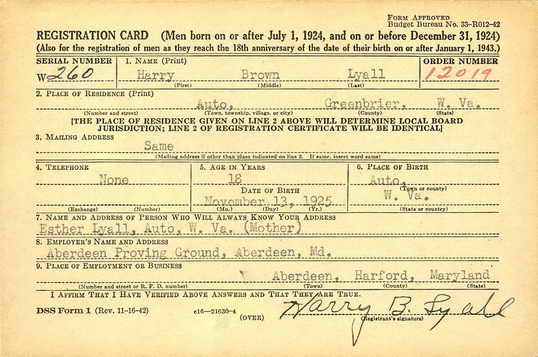 Form Approved
Budget Bureau No. 33-R012-42
REGISTRATION CARD (Men born on or after July 1, 1924, and on or before December 31, 1924)
(Also for the registration of men as they reach the 18th anniversary of the date of their birth on or after January 1, 1943.)
SERIAL NUMBER 1. NAME (Print) ORDER NUMBER
W 260 Harry Brown Lyall 12019
(First) (Middle) (Last)
2. PLACE OF RESIDENCE (Print)
Auto, Greenbrier, W. Va.
(Number and street) (Town, township, village, or city) (County) (State)
[THE PLACE OF RESIDENCE GIVEN ON LINE 2 ABOVE WILL DETERMINE LOCAL BOARD
JURISDICTION; LINE 2 OF REGISTRATION CERTIFICATE WILL BE IDENTICAL]
3. MAILING ADDRESS
Same
(Mailing address if other than place indicated on line 2. If same, insert word same)
4. TELEPHONE 5. AGE IN YEARS 6. PLACE OF BIRTH
None 18 Auto,
DATE OF BIRTH (Town or county)
November 13, 1925 W. Va.
(Exchange) (Number) (Mo.) (Day) (Yr.) (State or country)
7. NAME AND ADDRESS OF PERSON WHO WILL ALWAYS KNOW YOUR ADDRESS
Esther Lyall, Auto, W. Va. (Mother)
8. EMPLOYER'S NAME AND ADDRESS
Aberdeen Proving Ground, Aberdeen, Md.
9. PLACE OF EMPLOYMENT OR BUSINESS
Aberdeen, Harford, Maryland
(Number and street or R. F. D. number) (Town) (County) (State)
I AFFIRM THAT I HAVE VERIFIED ABOVE ANSWERS AND THAT THEY ARE TRUE.
DSS Form 1 (Rev. 11-16-42) c16—21630-4 Harry B. Lyall
(OVER) (Registrant's signature)